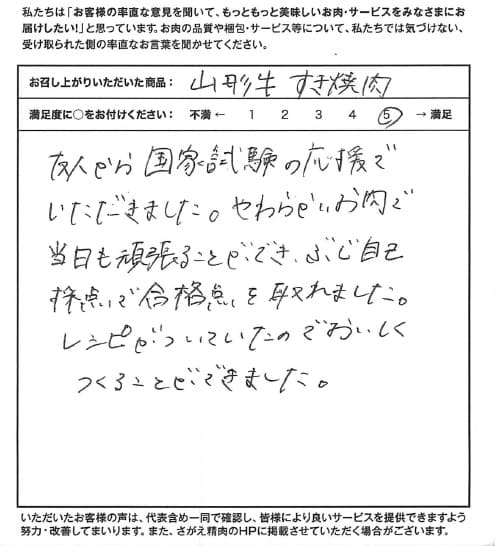 私たちは「お客様の率直な意見を聞いて、もっともっと美味しいお肉・サービスをみなさまにお
届けしたい!」と思っています。お肉の品質や梱包・サービス等について、私たちでは気づけない、
受け取られた側の率直なお言葉を聞かせてください。
お召し上がりいただいた商品： 山形牛 すき焼肉
満足度に○をお付けください： 不満 ← 1 2 3 4 5 → 満足
友人から国家試験の応援で
いただきました。やわらかいお肉で
当日も頑張ることができ、ぶじ自己
採点で合格点を取れました。
レシピがついていたのでおいしく
つくることができました。
いただいたお客様の声は、代表含め一同で確認し、皆様により良いサービスを提供できますよう
努力・改善してまいります。また、さがえ精肉のHPに掲載させていただく場合がございます。